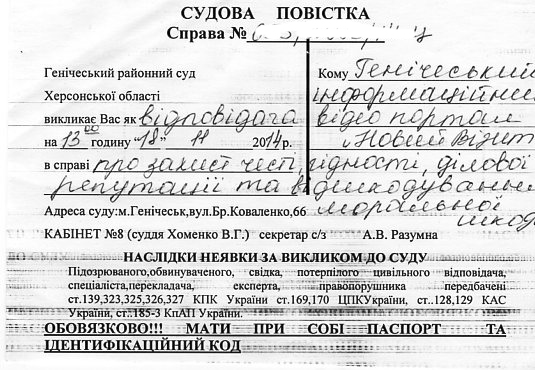 СУДОВА ПОВІСТКА
Справа №
Генічеський районний суд
Херсонської області
викликає Вас як відповідача
на 13 00 годину "18" 11 2014р.
Кому Генічеський
інформаційний
відео портал
"Новий Візит
в справі про захист честі, гідності, ділової
репутації та відшкодування
моральної
шкоди
Адреса суду:м.Генічеськ,вул.Бр.Коваленко,66
КАБІНЕТ №8 (суддя Хоменко В.Г.) секретар с/з А.В. Разумна
НАСЛІДКИ НЕЯВКИ ЗА ВИКЛИКОМ ДО СУДУ
Підозрюваного,обвинуваченого, свідка, потерпілого цивільного відповідача,
спеціаліста,перекладача, експерта, правопорушника передбачені
ст.139,323,325,326,327 КПК України ст.169,170 ЦПКУкраїни, ст..128,129 КАС
України, ст..185-3 КпАП України.
ОБОВЯЗКОВО!!! МАТИ ПРИ СОБІ ПАСПОРТ ТА
ІДЕНТИФІКАЦІЙНИЙ КОД